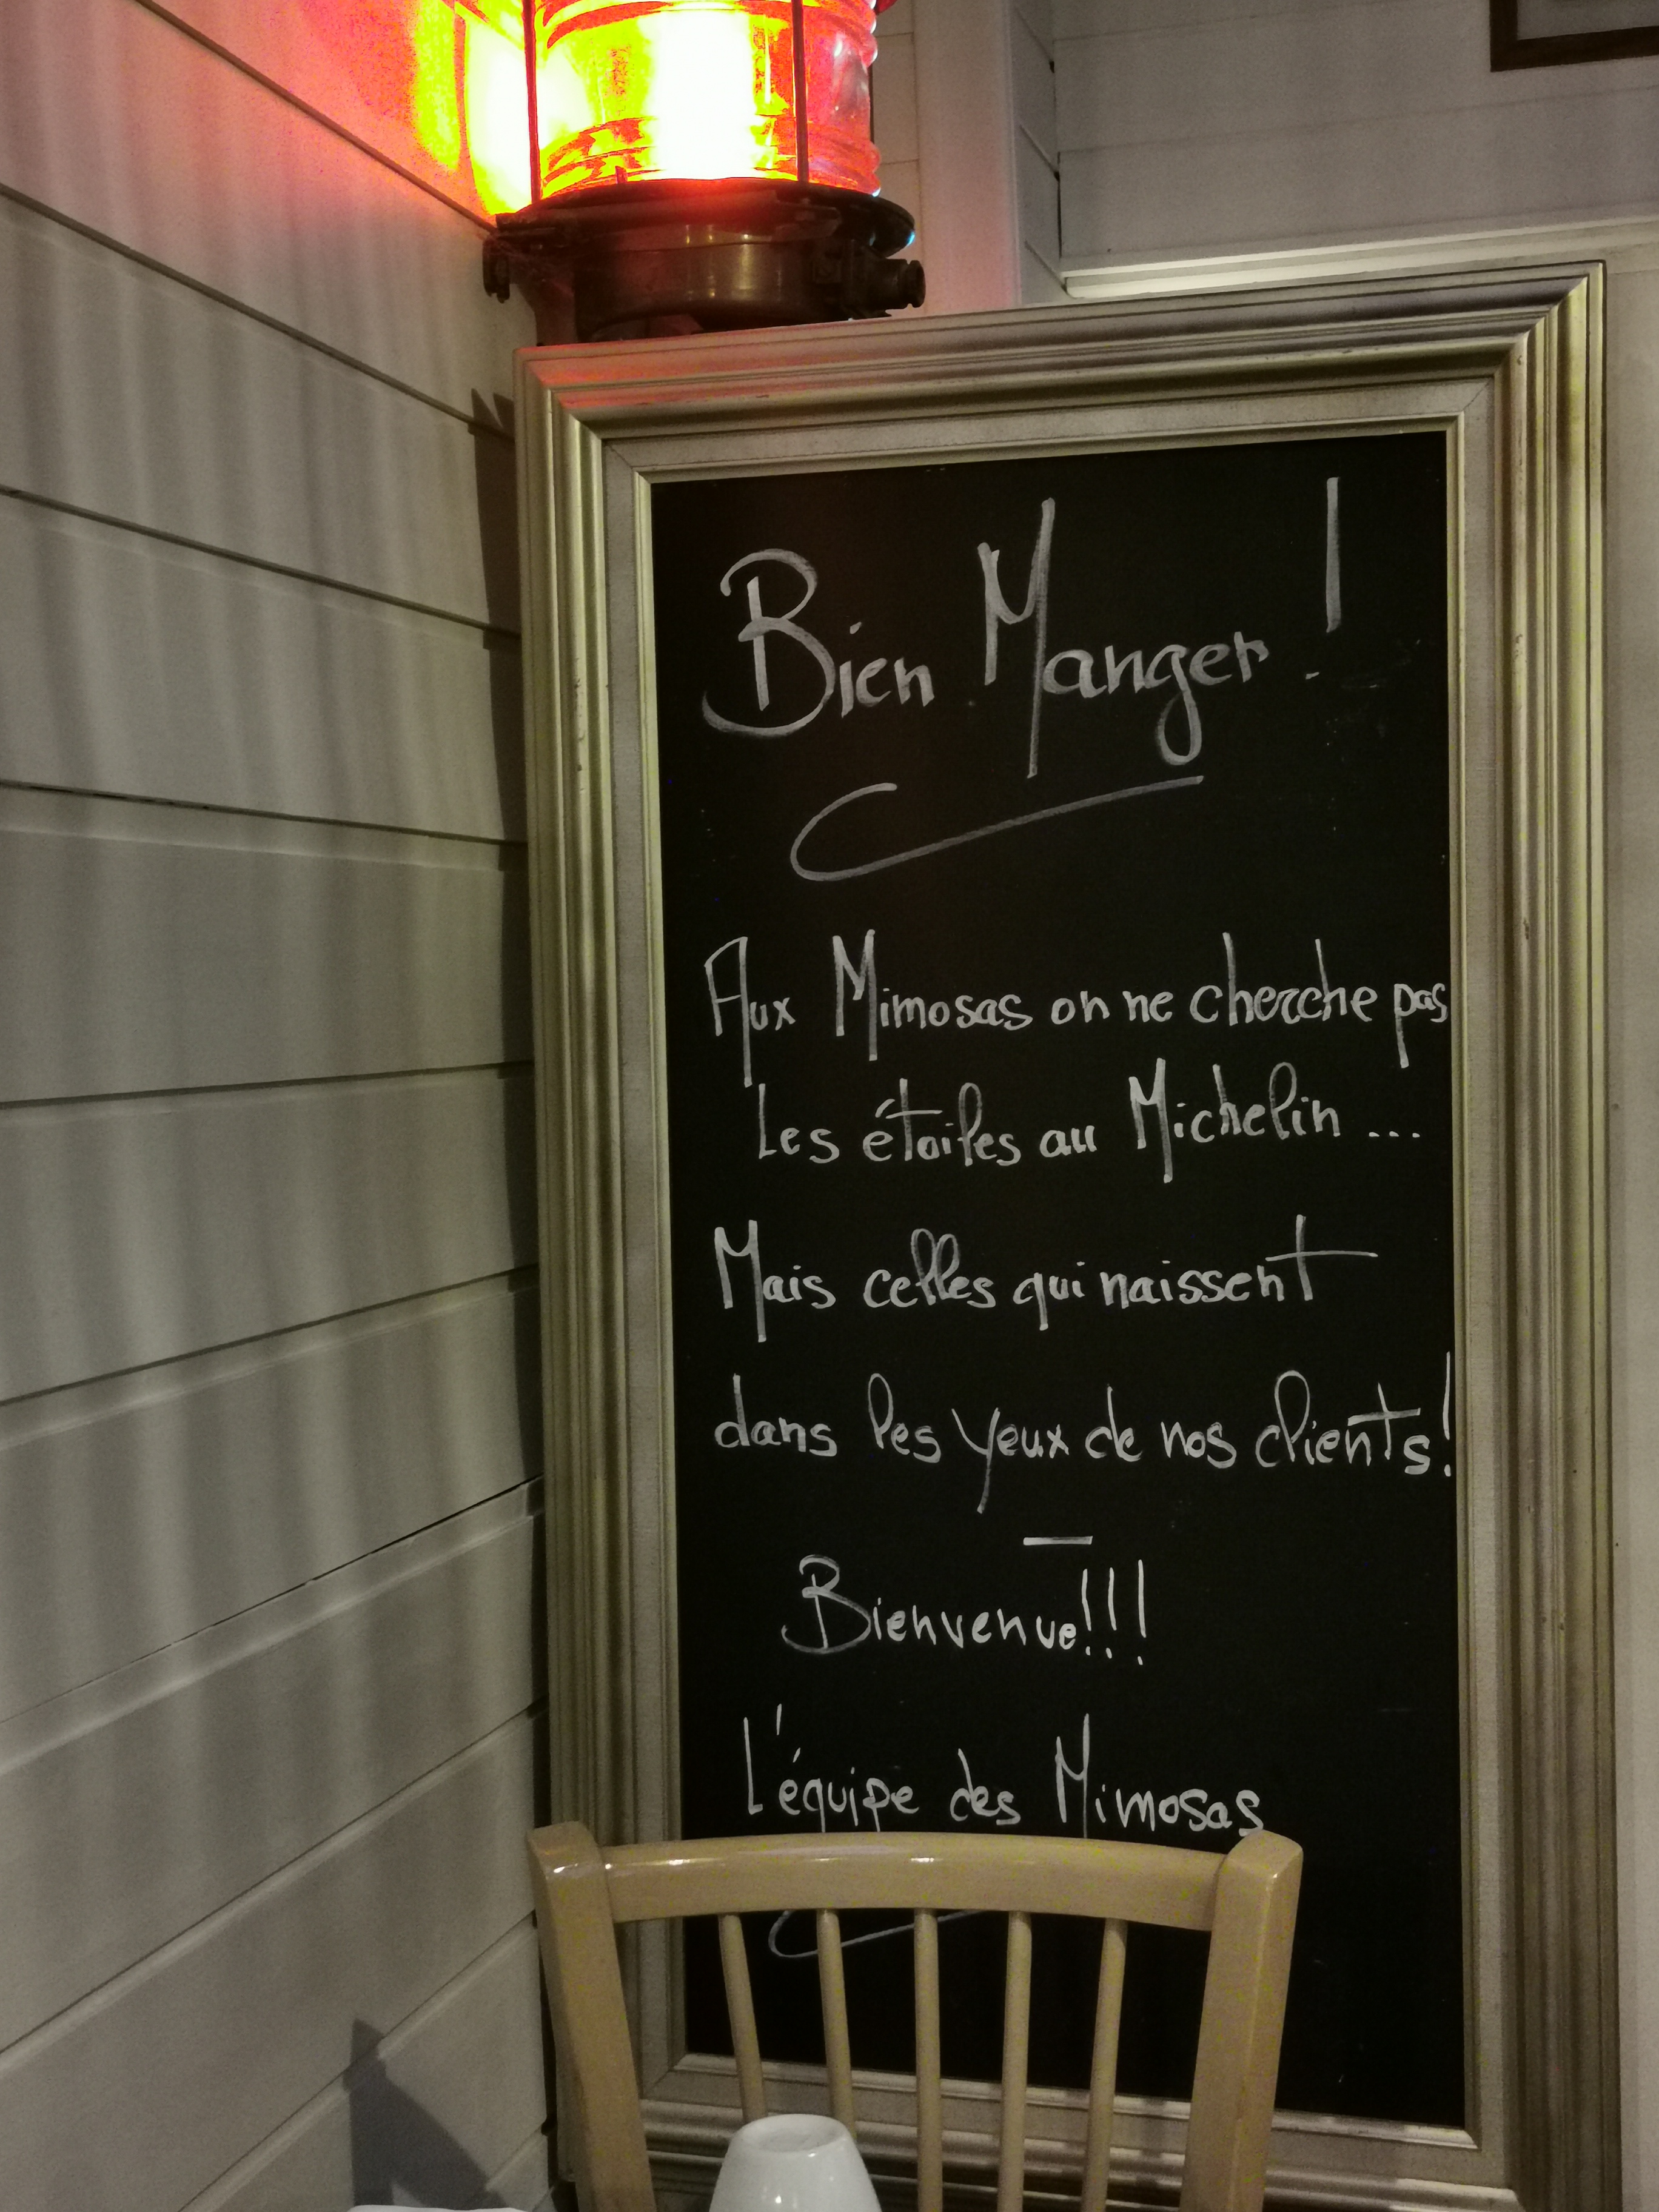 Bien Manger !
Aux Mimosas on ne cherche pas
Les étoiles au Michelin ...
Mais celles qui naissent
dans les yeux de nos clients!
Bienvenue!!!
L'équipe des Mimosas